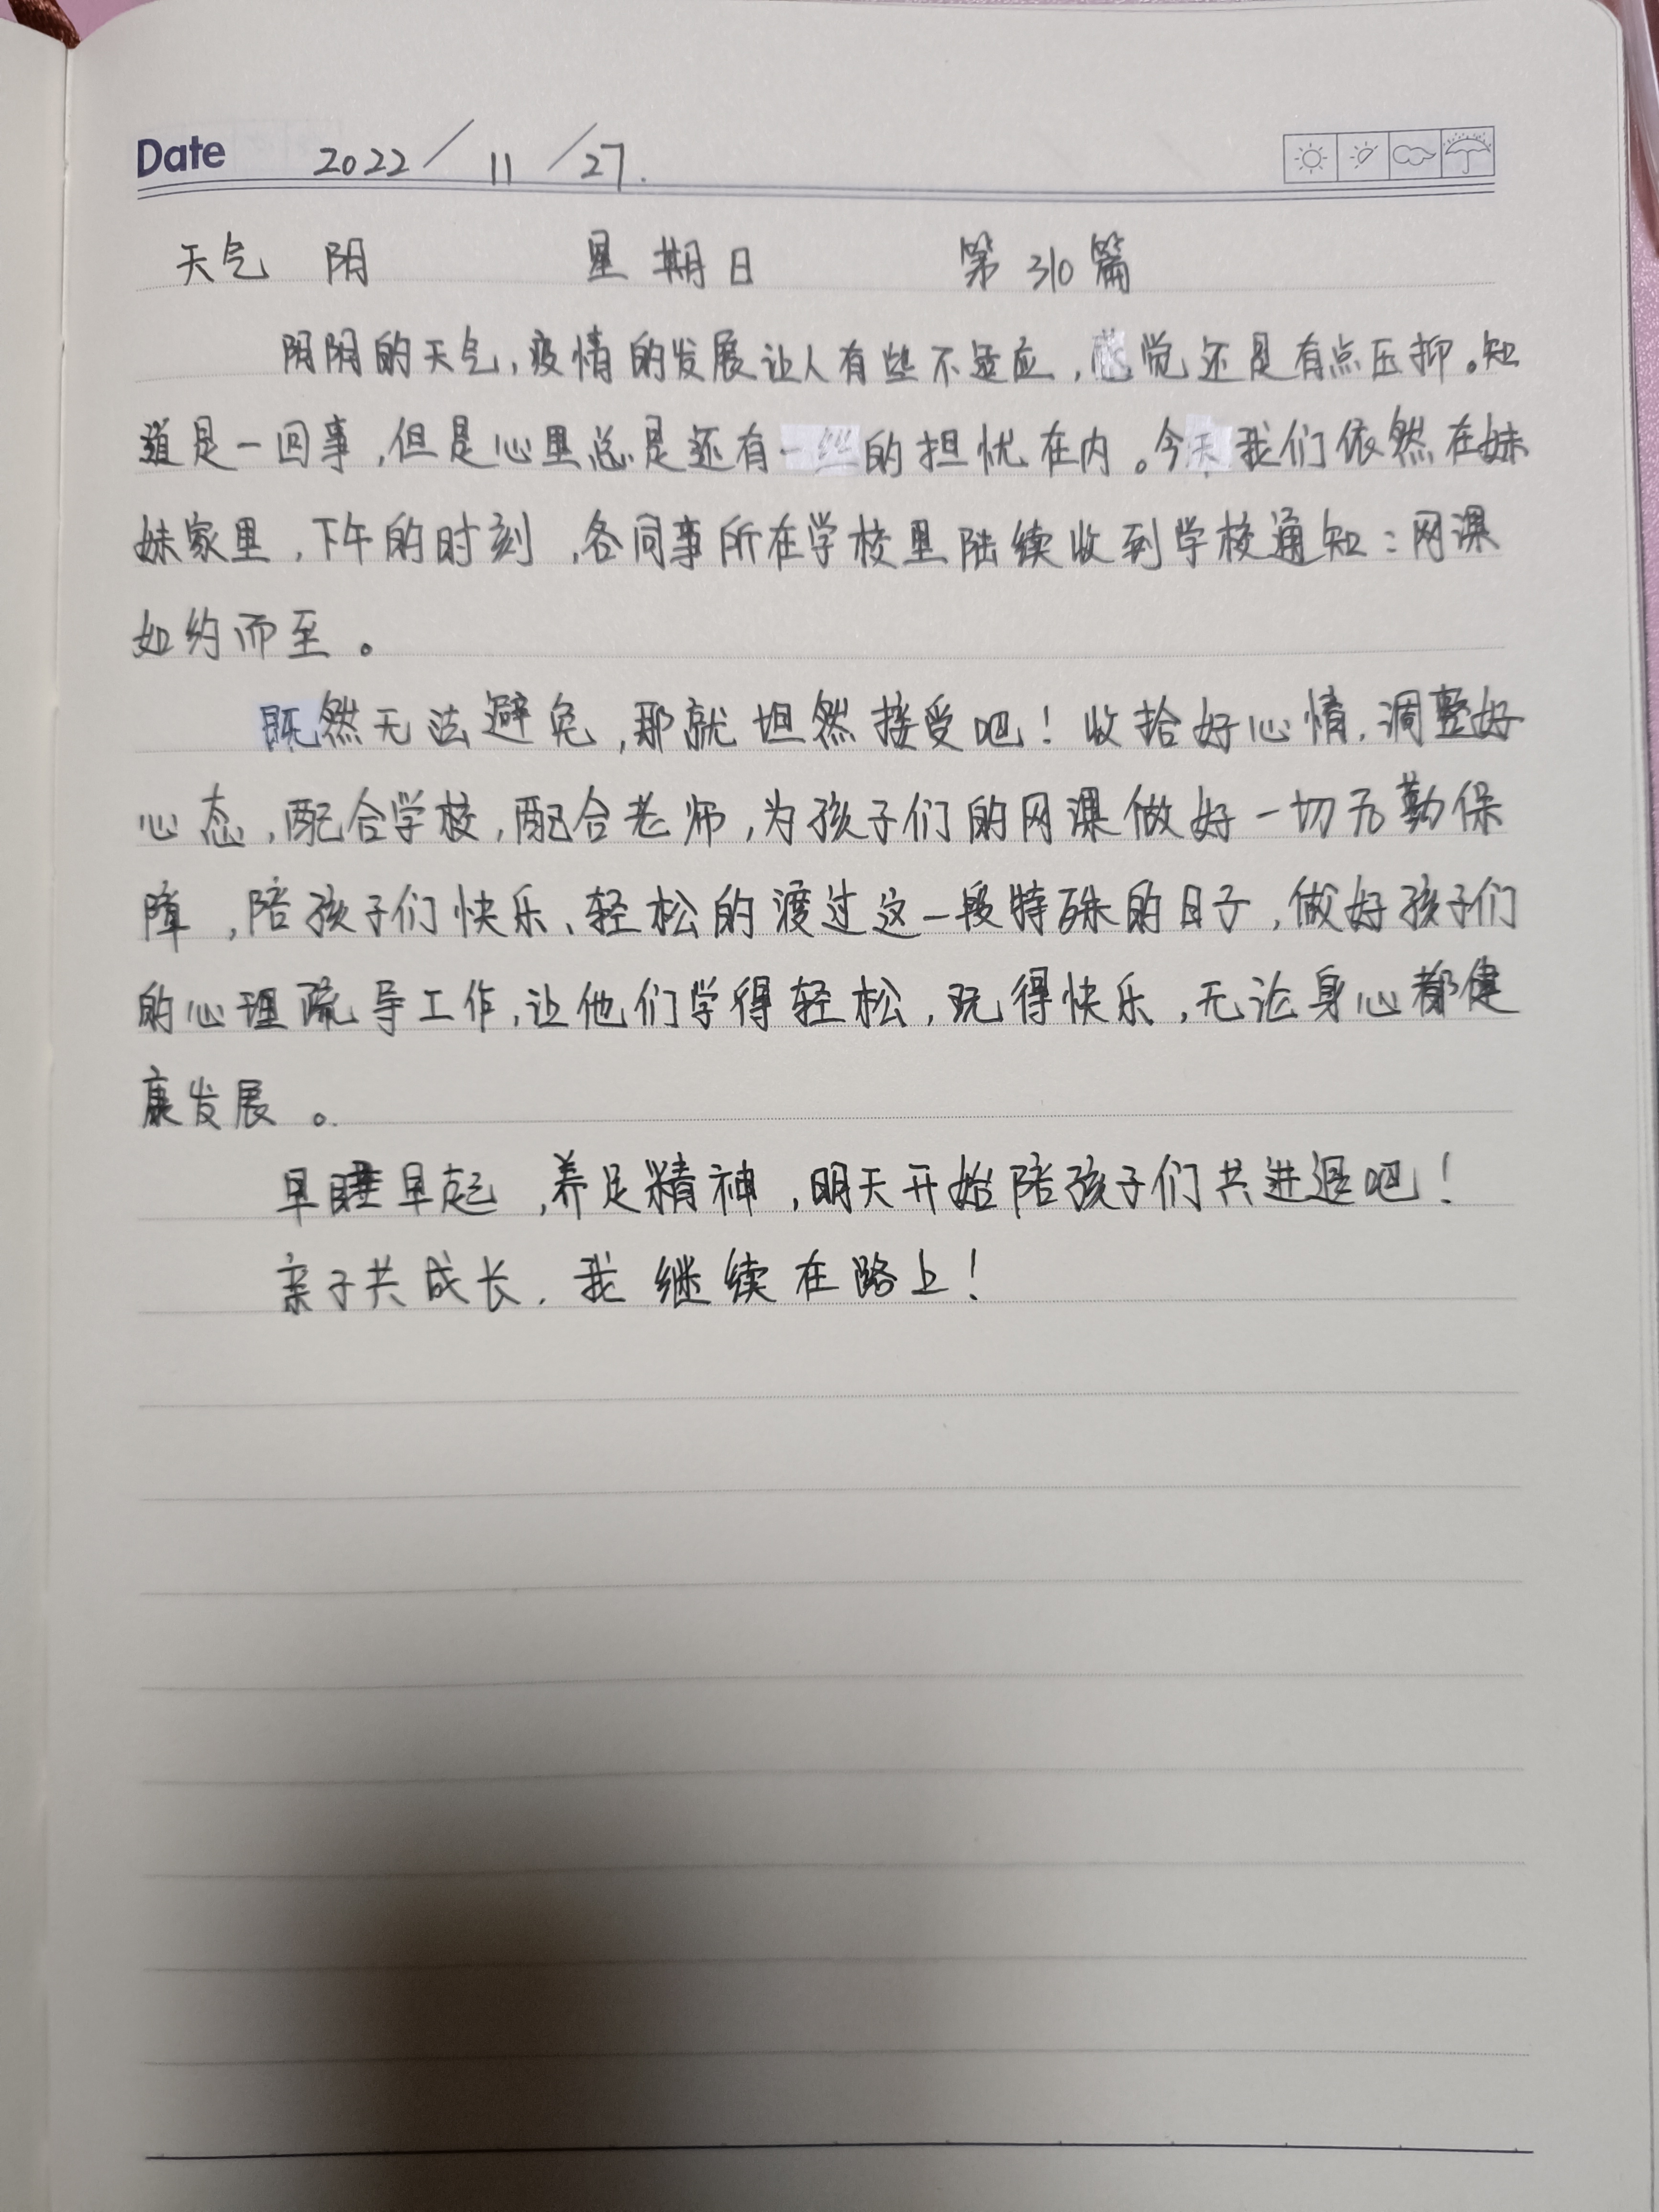 Date 2022/11/27.
天气 阴 星期日 第310篇
阴阴的天气,疫情的发展让人有些不适应,感觉还是有点压抑。知
道是一回事,但是心里总是还有一丝的担忧在内。今天我们依然在妹
妹家里,下午的时刻,各同事所在学校里陆续收到学校通知:网课
如约而至。
既然无法避免,那就坦然接受吧!收拾好心情,调整好
心态,配合学校,配合老师,为孩子们的网课做好一切后勤保
障,陪孩子们快乐、轻松的渡过这一段特殊的日子,做好孩子们
的心理疏导工作,让他们学得轻松,玩得快乐,无论身心都健
康发展。
早睡早起,养足精神,明天开始陪孩子们共进退吧!
亲子共成长,我继续在路上!